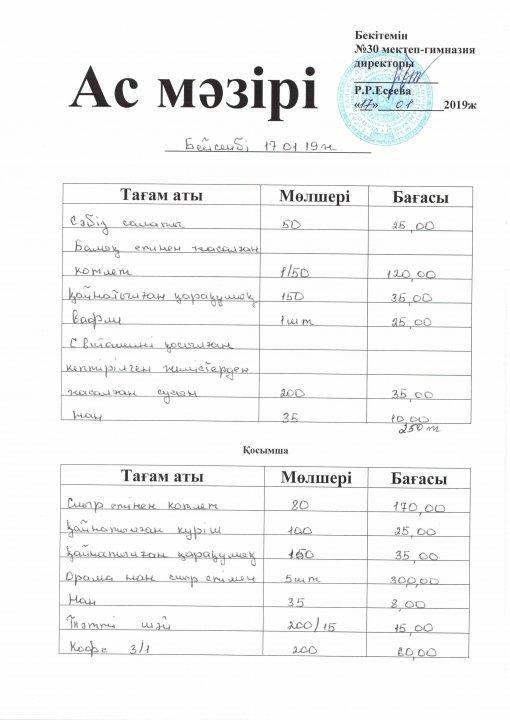 Бекітемін
№30 мектеп-гимназия
директоры
Р.Р.Есеева
«17» 01 2019ж
Ас мәзірі
Бейсенбі 17 01 19ж
Тағам аты Мөлшері Бағасы
Сәбіз салаты 50 25,00
Балық етінен жасалған
котлет 1/50 120,00
Қайнатылған қарақұмық 150 35,00
Вафли 1шт 25,00
С витамині қосылған
кептірілген жемістерден
жасалған сусын 200 35,00
Нан 35 10,00
250т
Қосымша
Тағам аты Мөлшері Бағасы
Сиыр етінен котлет 80 170,00
Қайнатылған күріш 100 25,00
Қайнатылған қарақұмық 150 35,00
Орама нан сиыр етімен 5шт 300,00
Нан 35 8,00
Тәтті шәй 200/15 15,00
Кофе 3/1 200 60,00